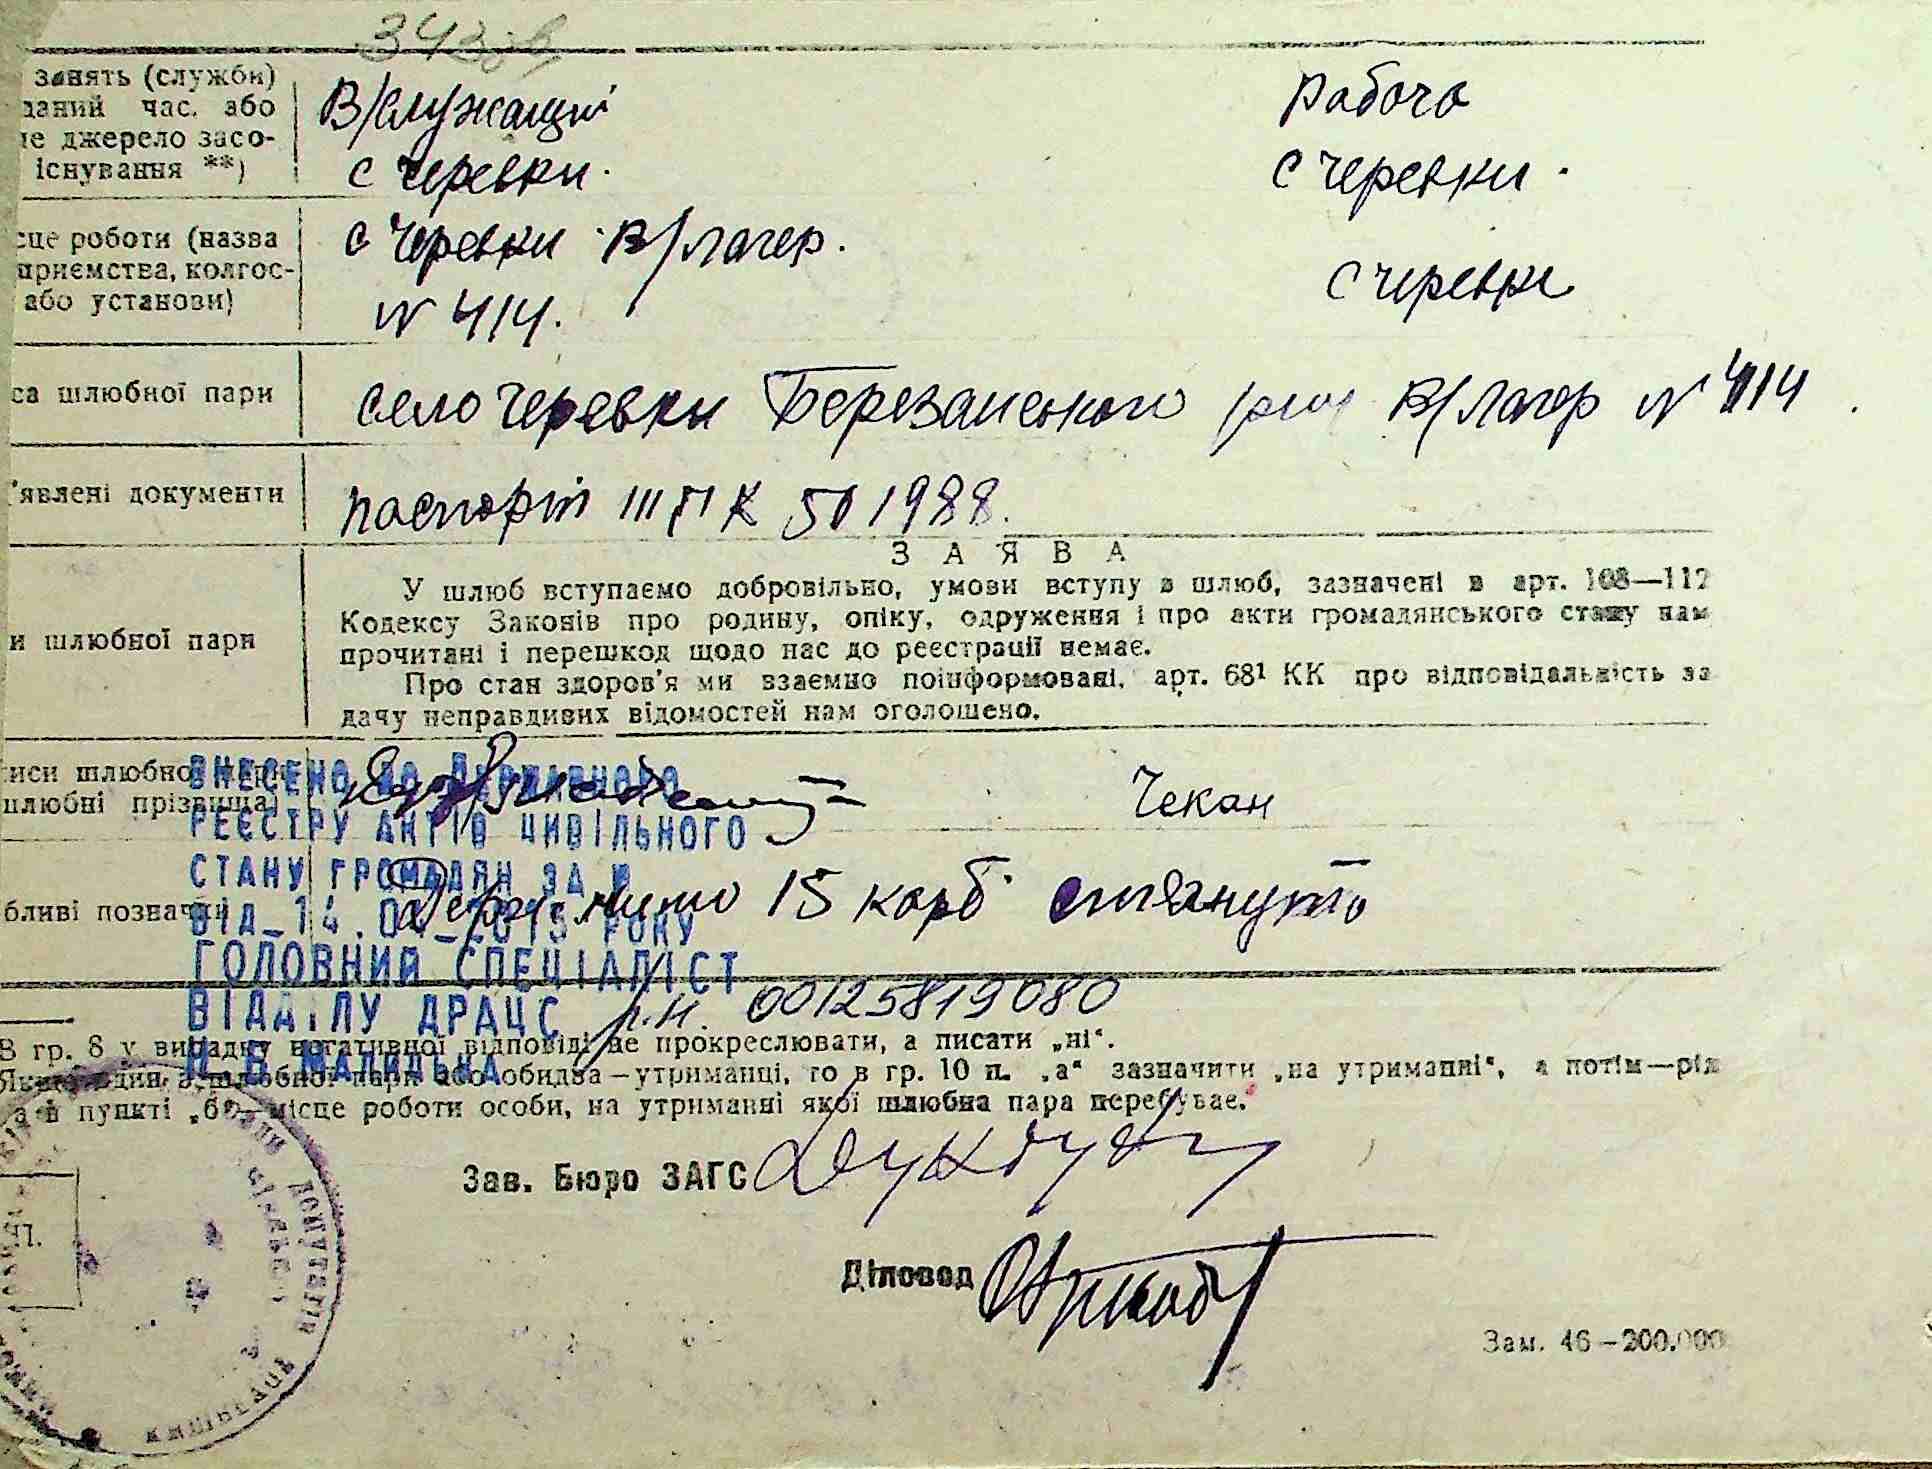 343 зв
занять (служби)
даний час, або
не джерело засо-
існування **)
В/служащий
с Черевки.
Рабоча
с Черевки.
сце роботи (назва
приємства, колгос-
або установи)
с Черевки В/лагер.
N 414.
с Черевки
са шлюбної пари
село Черевки Березанського В/лагер N 414.
'явлені документи
паспорт III ПК 501988.
ЗАЯВА
и шлюбної пари
У шлюб вступаємо добровільно, умови вступу в шлюб, зазначені в арт. 108—112
Кодексу Законів про родину, опіку, одруження і про акти громадянського стану нам
прочитані і перешкод щодо нас до реєстрації немає.
Про стан здоров'я ми взаємно поінформовані, арт. 68¹ КК про відповідальність за
дачу неправдивих відомостей нам оголошено.
иси шлюбної пари
шлюбні прізвища)
Чекан
бливі позначки
Держ. мито 15 карб стягнуто
ВНЕСЕНО ДО ДЕРЖАВНОГО
РЕЄСТРУ АКТІВ ЦИВІЛЬНОГО
СТАНУ ГРОМАДЯН ЗА №
ВІД 14.04.2015 РОКУ
ГОЛОВНИЙ СПЕЦІАЛІСТ
ВІДДІЛУ ДРАЦС
р.н. 00125819080
В гр. 8 у випадку негативної відповіді не прокреслювати, а писати „ні“.
Якщо один з шлюбної пари або обидва—утриманці, то в гр. 10 п. „а“ зазначити „на утриманні“, а потім—рід
а в пункті „б“—місце роботи особи, на утриманні якої шлюбна пара перебуває.
Зав. Бюро ЗАГС
Діловод
Зам. 46—200.000